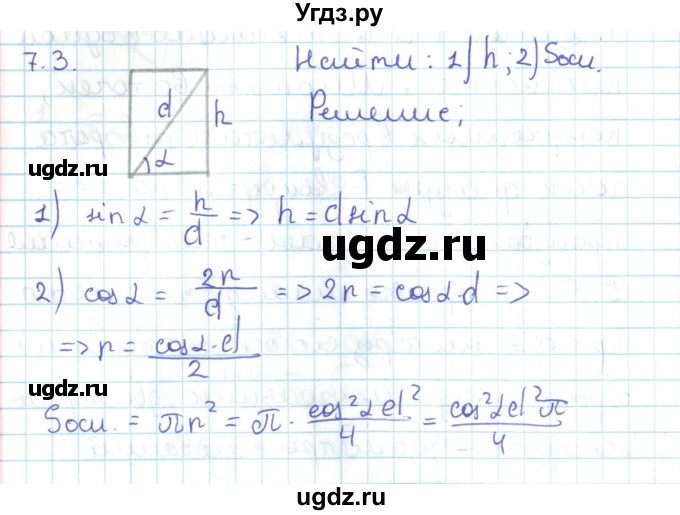 Угдз.ру
7.3.
Найти: 1) h; 2) Sосн.
Решение;
d
h
α
ugdz.ru
ugdz.ru
1) sin α = h/d => h = d sin α
ugdz.ru
2) cos α = 2r/d => 2r = cos α · d =>
=> r = cos α · d/2
ugdz.ru
ugdz.ru
Sосн. = πr² = π · cos²α d²/4 = cos²α d² π/4
ugdz.ru